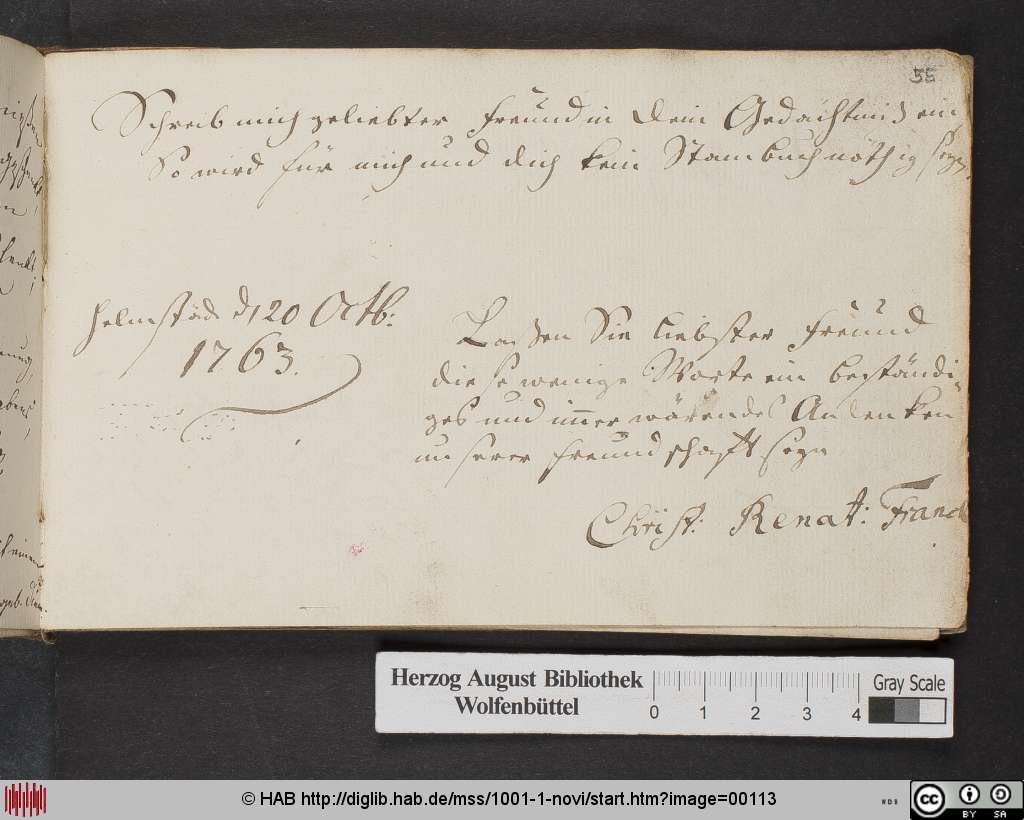 55
Schreib mich geliebter Freund in dein Gedächtniß ein,
So wird für mich und dich kein Stambuch nöthig seyn.
Helmstäd d 20 Octb:
1763.
Laßen Sie liebster Freund
diese wenige Worte ein beständi-
ges und im̅er wärendes Andenken
unserer Freundschafft seyn
Christ: Renat: Franck
Herzog August Bibliothek
Wolfenbüttel
Gray Scale
0 1 2 3 4
© HAB http://diglib.hab.de/mss/1001-1-novi/start.htm?image=00113
WDB
cc BY SA